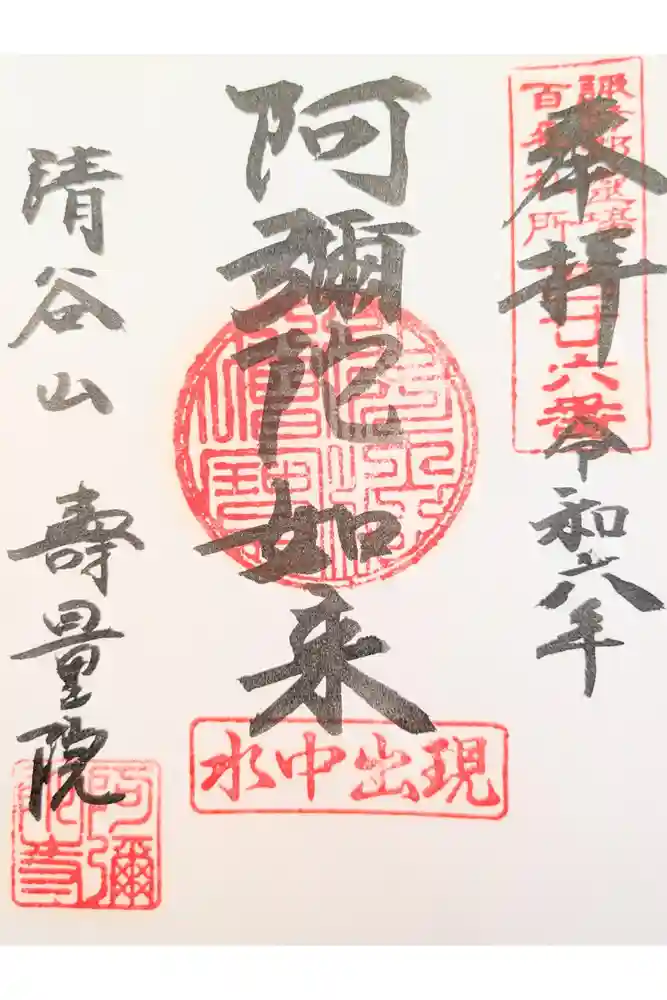 奉拝
令和六年
百番札所
廿六番
阿彌陀如来
水中出現
清谷山 壽量院
阿彌陀寺